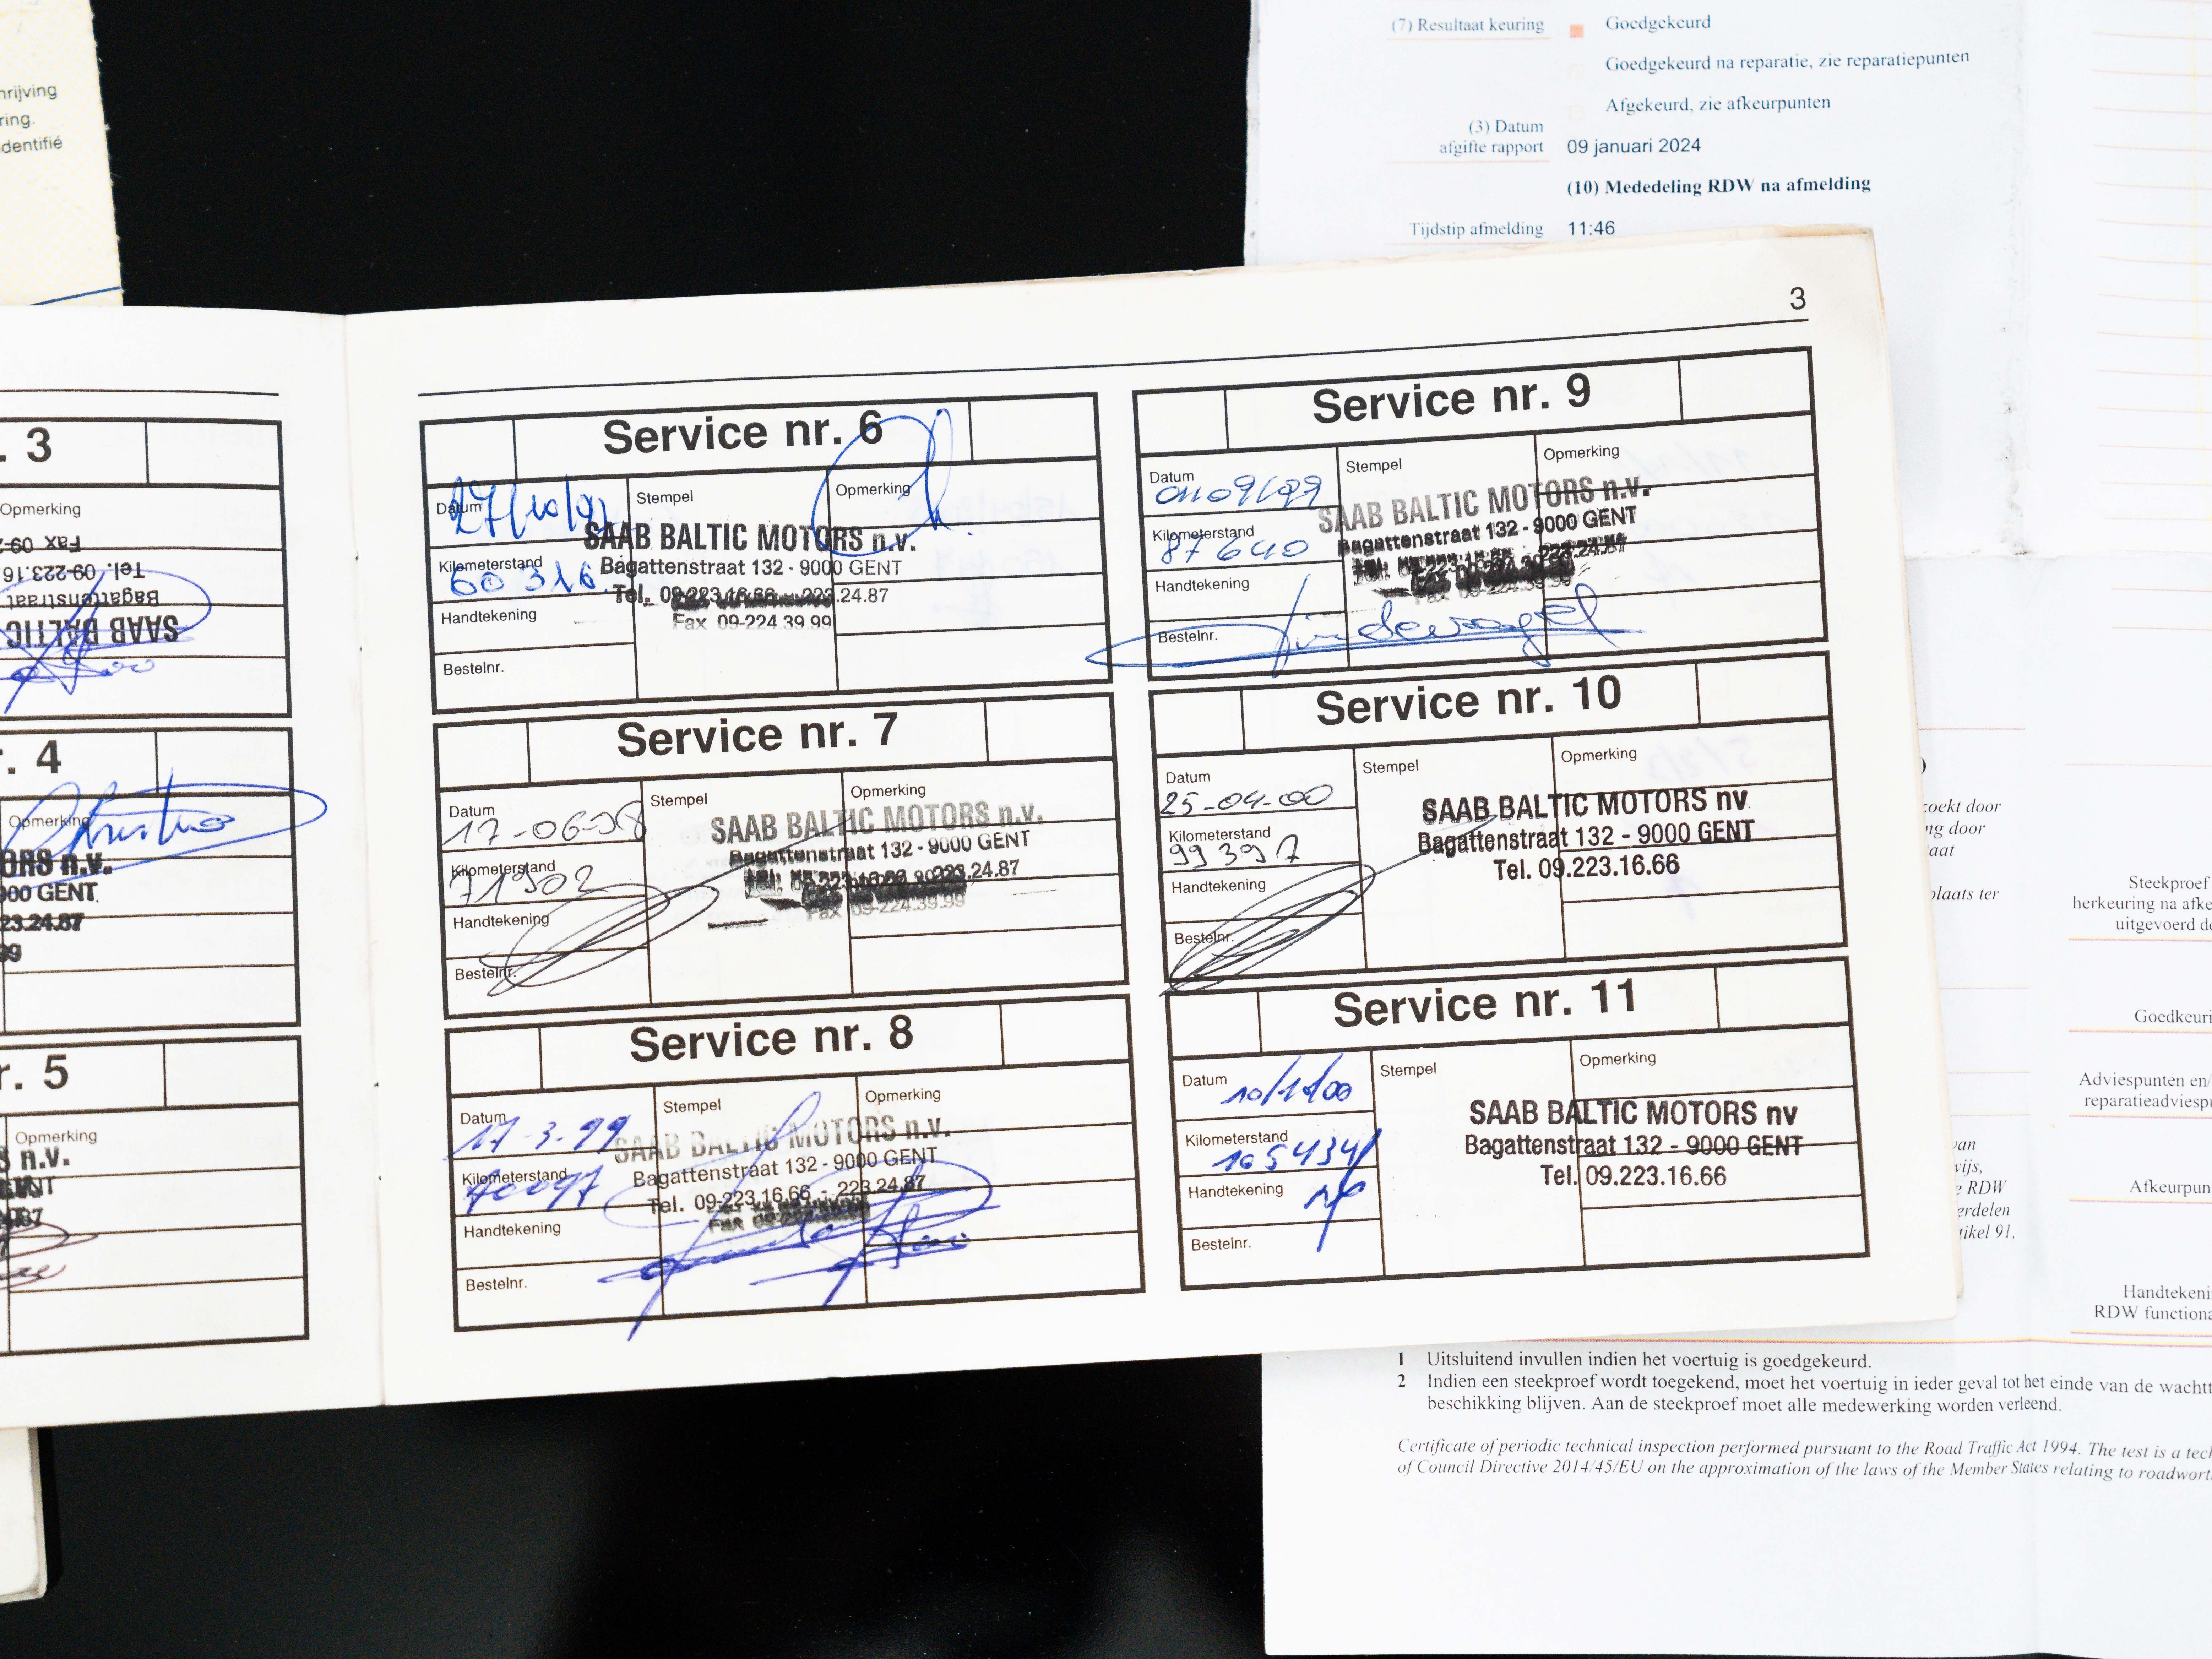 hrijving
ring.
identifié
(7) Resultaat keuring
Goedgekeurd
Goedgekeurd na reparatie, zie reparatiepunten
Afgekeurd, zie afkeurpunten
(3) Datum
afgifte rapport
09 januari 2024
(10) Mededeling RDW na afmelding
Tijdstip afmelding
11:46
3
. 3
Opmerking
Fax 09-2
Tel. 09-223.16
Bagattenstraat
SAAB BALTIC
. 4
Opmerking
ORS n.v.
000 GENT
23.24.87
99
r. 5
Opmerking
S n.v.
Service nr. 6
Datum
27/10/97
Stempel
Opmerking
SAAB BALTIC MOTORS n.v.
Bagattenstraat 132 - 9000 GENT
Tel. 09-223.16.66 223.24.87
Fax 09-224 39.99
Kilometerstand
60 316
Handtekening
Bestelnr.
Service nr. 7
Datum
17-06-98
Stempel
Opmerking
SAAB BALTIC MOTORS n.v.
Bagattenstraat 132 - 9000 GENT
223.24.87
Fax 09-224.39.99
Kilometerstand
71902
Handtekening
Bestelnr.
Service nr. 8
Datum
17-3-99
Stempel
Opmerking
SAAB BALTIC MOTORS n.v.
Bagattenstraat 132 - 9000 GENT
Tel. 09-223.16.66 - 223.24.87
Kilometerstand
Handtekening
Bestelnr.
Service nr. 9
Datum
01/09/99
Stempel
Opmerking
SAAB BALTIC MOTORS n.v.
Bagattenstraat 132 - 9000 GENT
223.24.87
Kilometerstand
87640
Handtekening
Bestelnr.
Service nr. 10
Datum
25-04-00
Stempel
Opmerking
SAAB BALTIC MOTORS nv
Bagattenstraat 132 - 9000 GENT
Tel. 09.223.16.66
Kilometerstand
99397
Handtekening
Bestelnr.
Service nr. 11
Datum
Stempel
Opmerking
SAAB BALTIC MOTORS nv
Bagattenstraat 132 - 9000 GENT
Tel. 09.223.16.66
Kilometerstand
Handtekening
Bestelnr.
zoekt door
ng door
aat
plaats ter
van
wijs,
e RDW
erdelen
tikel 91,
Steekproef
herkeuring na afke
uitgevoerd do
Goedkeuri
Adviespunten en/
reparatieadviespu
Afkeurpun
Handtekeni
RDW functiona
1 Uitsluitend invullen indien het voertuig is goedgekeurd.
2 Indien een steekproef wordt toegekend, moet het voertuig in ieder geval tot het einde van de wachtt
beschikking blijven. Aan de steekproef moet alle medewerking worden verleend.
Certificate of periodic technical inspection performed pursuant to the Road Traffic Act 1994. The test is a tech
of Council Directive 2014/45/EU on the approximation of the laws of the Member States relating to roadwort